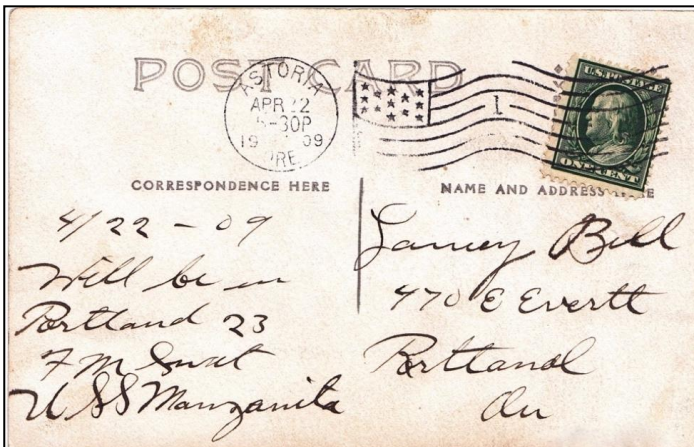 POST CARD
ASTORIA
APR 22
-30P
19 09
ORE.
1
U.S. POSTAGE
ONE CENT
CORRESPONDENCE HERE
NAME AND ADDRESS
4/22 - 09
Will be in
Portland 23
F M
USS Manzanita
Bell
470 E Everett
Portland